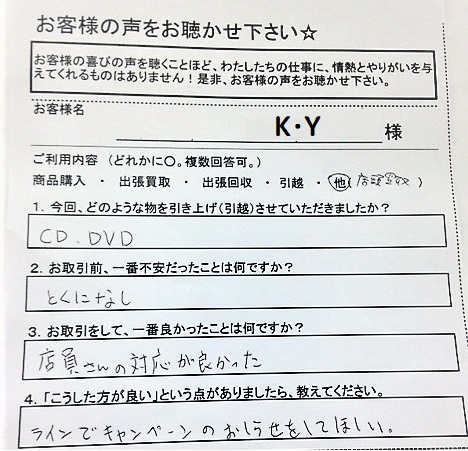 お客様の声をお聴かせ下さい☆
お客様の喜びの声を聴くことほど、わたしたちの仕事に、情熱とやりがいを与
えてくれるものはありません！是非、お客様の声をお聴かせ下さい。
お客様名
K・Y 様
ご利用内容 （どれかに〇。複数回答可。）
商品購入 ・ 出張買取 ・ 出張回収 ・ 引越 ・ 他（店頭買取）
１．今回、どのような物を引き上げ（引越）させていただきましたか？
CD.DVD
２．お取引前、一番不安だったことは何ですか？
とくになし
３．お取引をして、一番良かったことは何ですか？
店員さんの対応が良かった
４．「こうした方が良い」という点がありましたら、教えてください。
ラインでキャンペーンのおしらせをしてほしい。